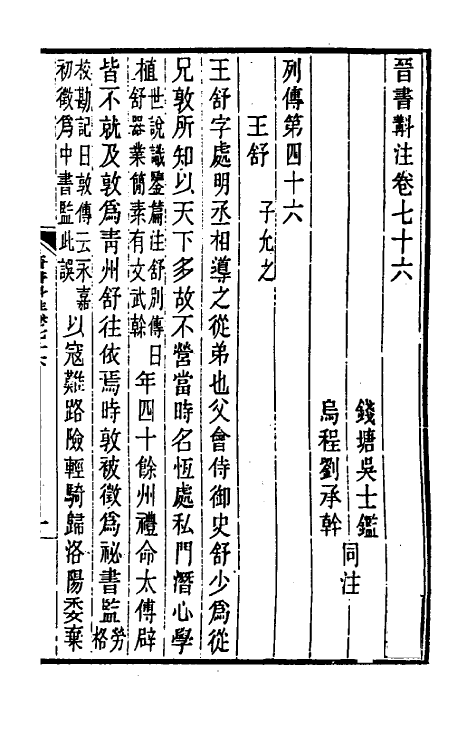 晉書斠注卷七十六
錢塘吳士鑑
烏程劉承幹
同注
列傳第四十六
王舒 子允之
王舒字處明丞相導之從弟也父會侍御史舒少爲從
兄敦所知以天下多故不營當時名恆處私門潛心學
植世說識鑒篇注舒別傳曰
舒器業簡素有文武幹
年四十餘州禮命太傅辟
皆不就及敦爲靑州舒往依焉時敦被徵爲祕書監勞
格
校勘記曰敦傳云永嘉
初徵爲中書監此誤
以寇難路險輕騎歸洛陽委棄